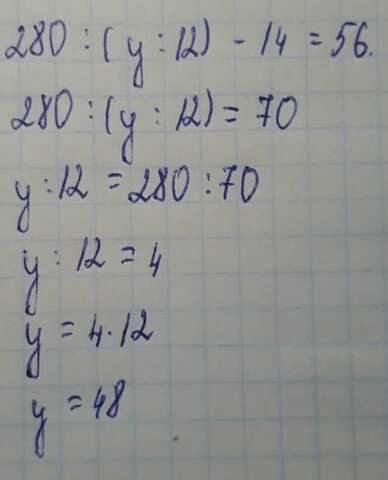 280 : (y : 12) - 14 = 56.
280 : (y : 12) = 70
y : 12 = 280 : 70
y : 12 = 4
y = 4 · 12
y = 48